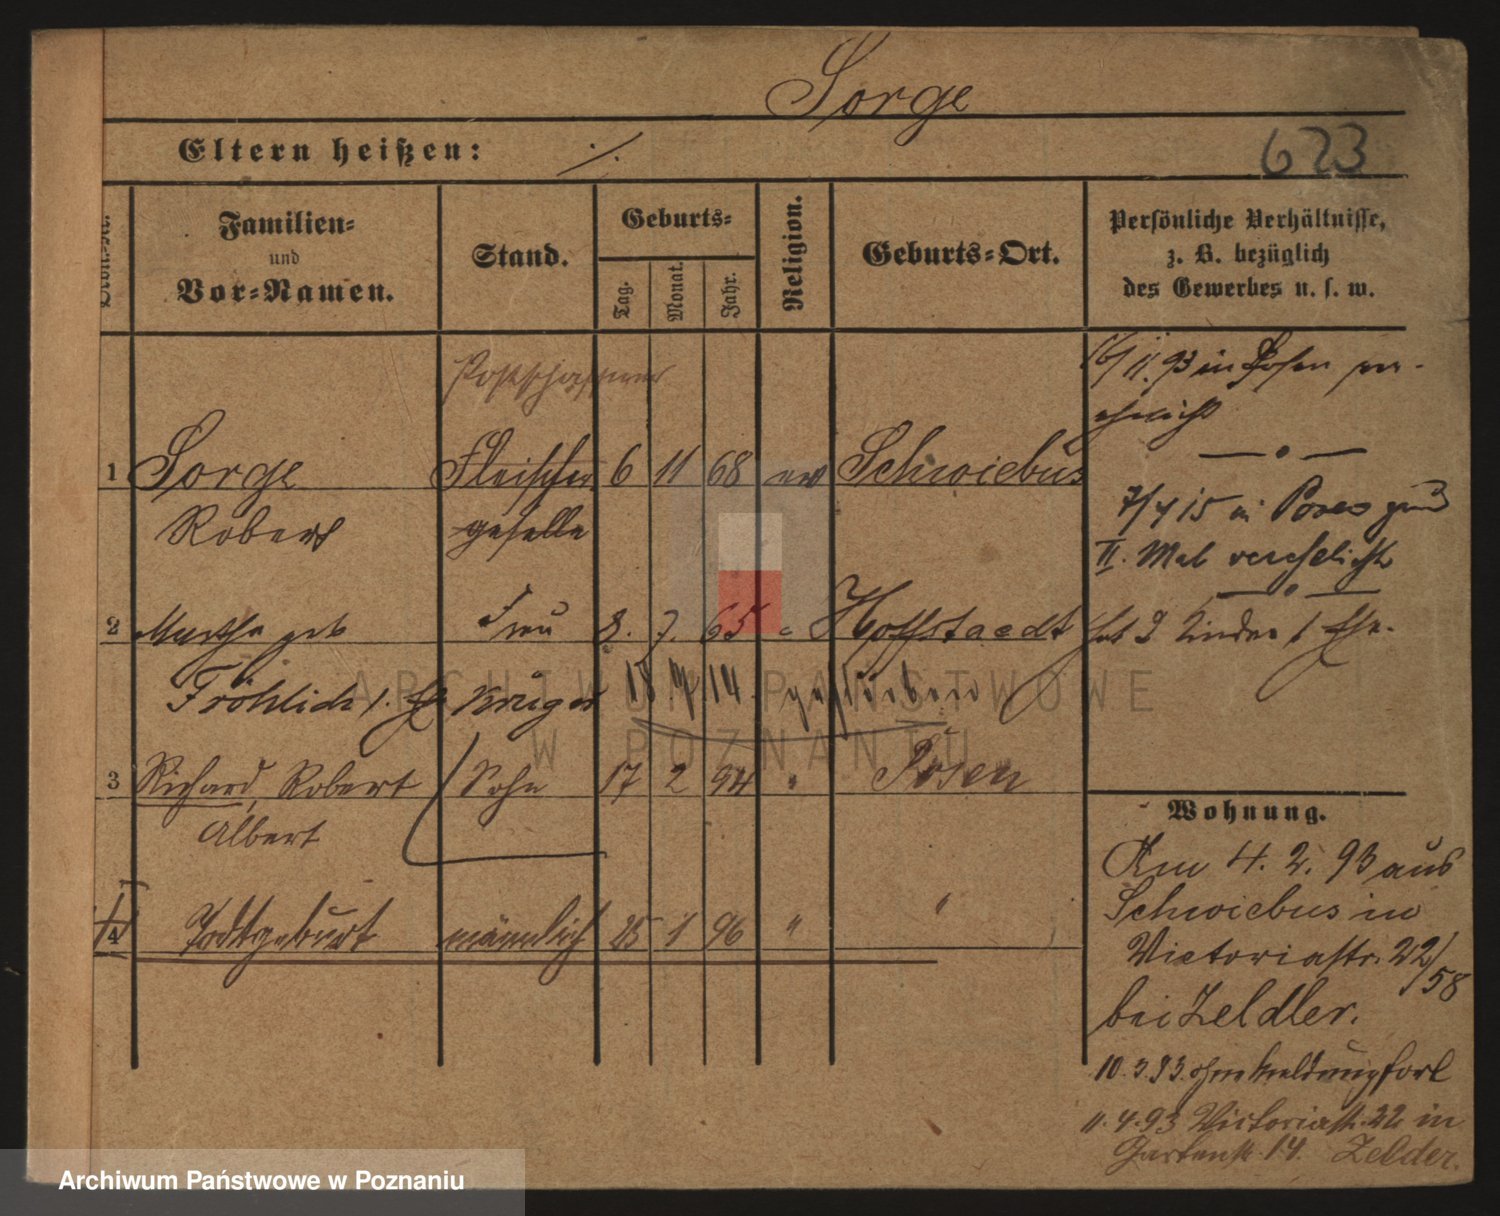 Sorge
Eltern heißen: ./.
623
Familien-
und
Vor-Namen.
Stand.
Geburts-
Tag.
Monat.
Jahr.
Religion.
Geburts-Ort.
Persönliche Verhältnisse,
z. B. bezüglich
des Gewerbes u. s. w.
Postschaffner
16/11.93 in Posen ver-
ehelicht
1 Sorge Fleischer 6 11 68 ev Schwiebus
Robert geselle
7/4 15 in Posen zum
II. Mal verehelicht
2 Martha geb Frau 8. 7. 65 " Hoffstaedt
hat 2 Kinder 1 Ehe.
Fröhlich 1. Ehe Krüger 18 9 14. gestorben
3 Richard, Robert Sohn 17 2 94 " Posen
Albert
4 Todtgeburt männlich 25 1 96 " "
Wohnung.
Am 4. 2. 93 aus
Schwiebus in
Victoriastr. 22/58
bei Zeldler.
10.3.93. ohne Meldung fort
11.4.93 Victoriastr. 22 in
Gartenstr. 14. Zelder.
ARCHIWUM PAŃSTWOWE
W POZNANIU
Archiwum Państwowe w Poznaniu